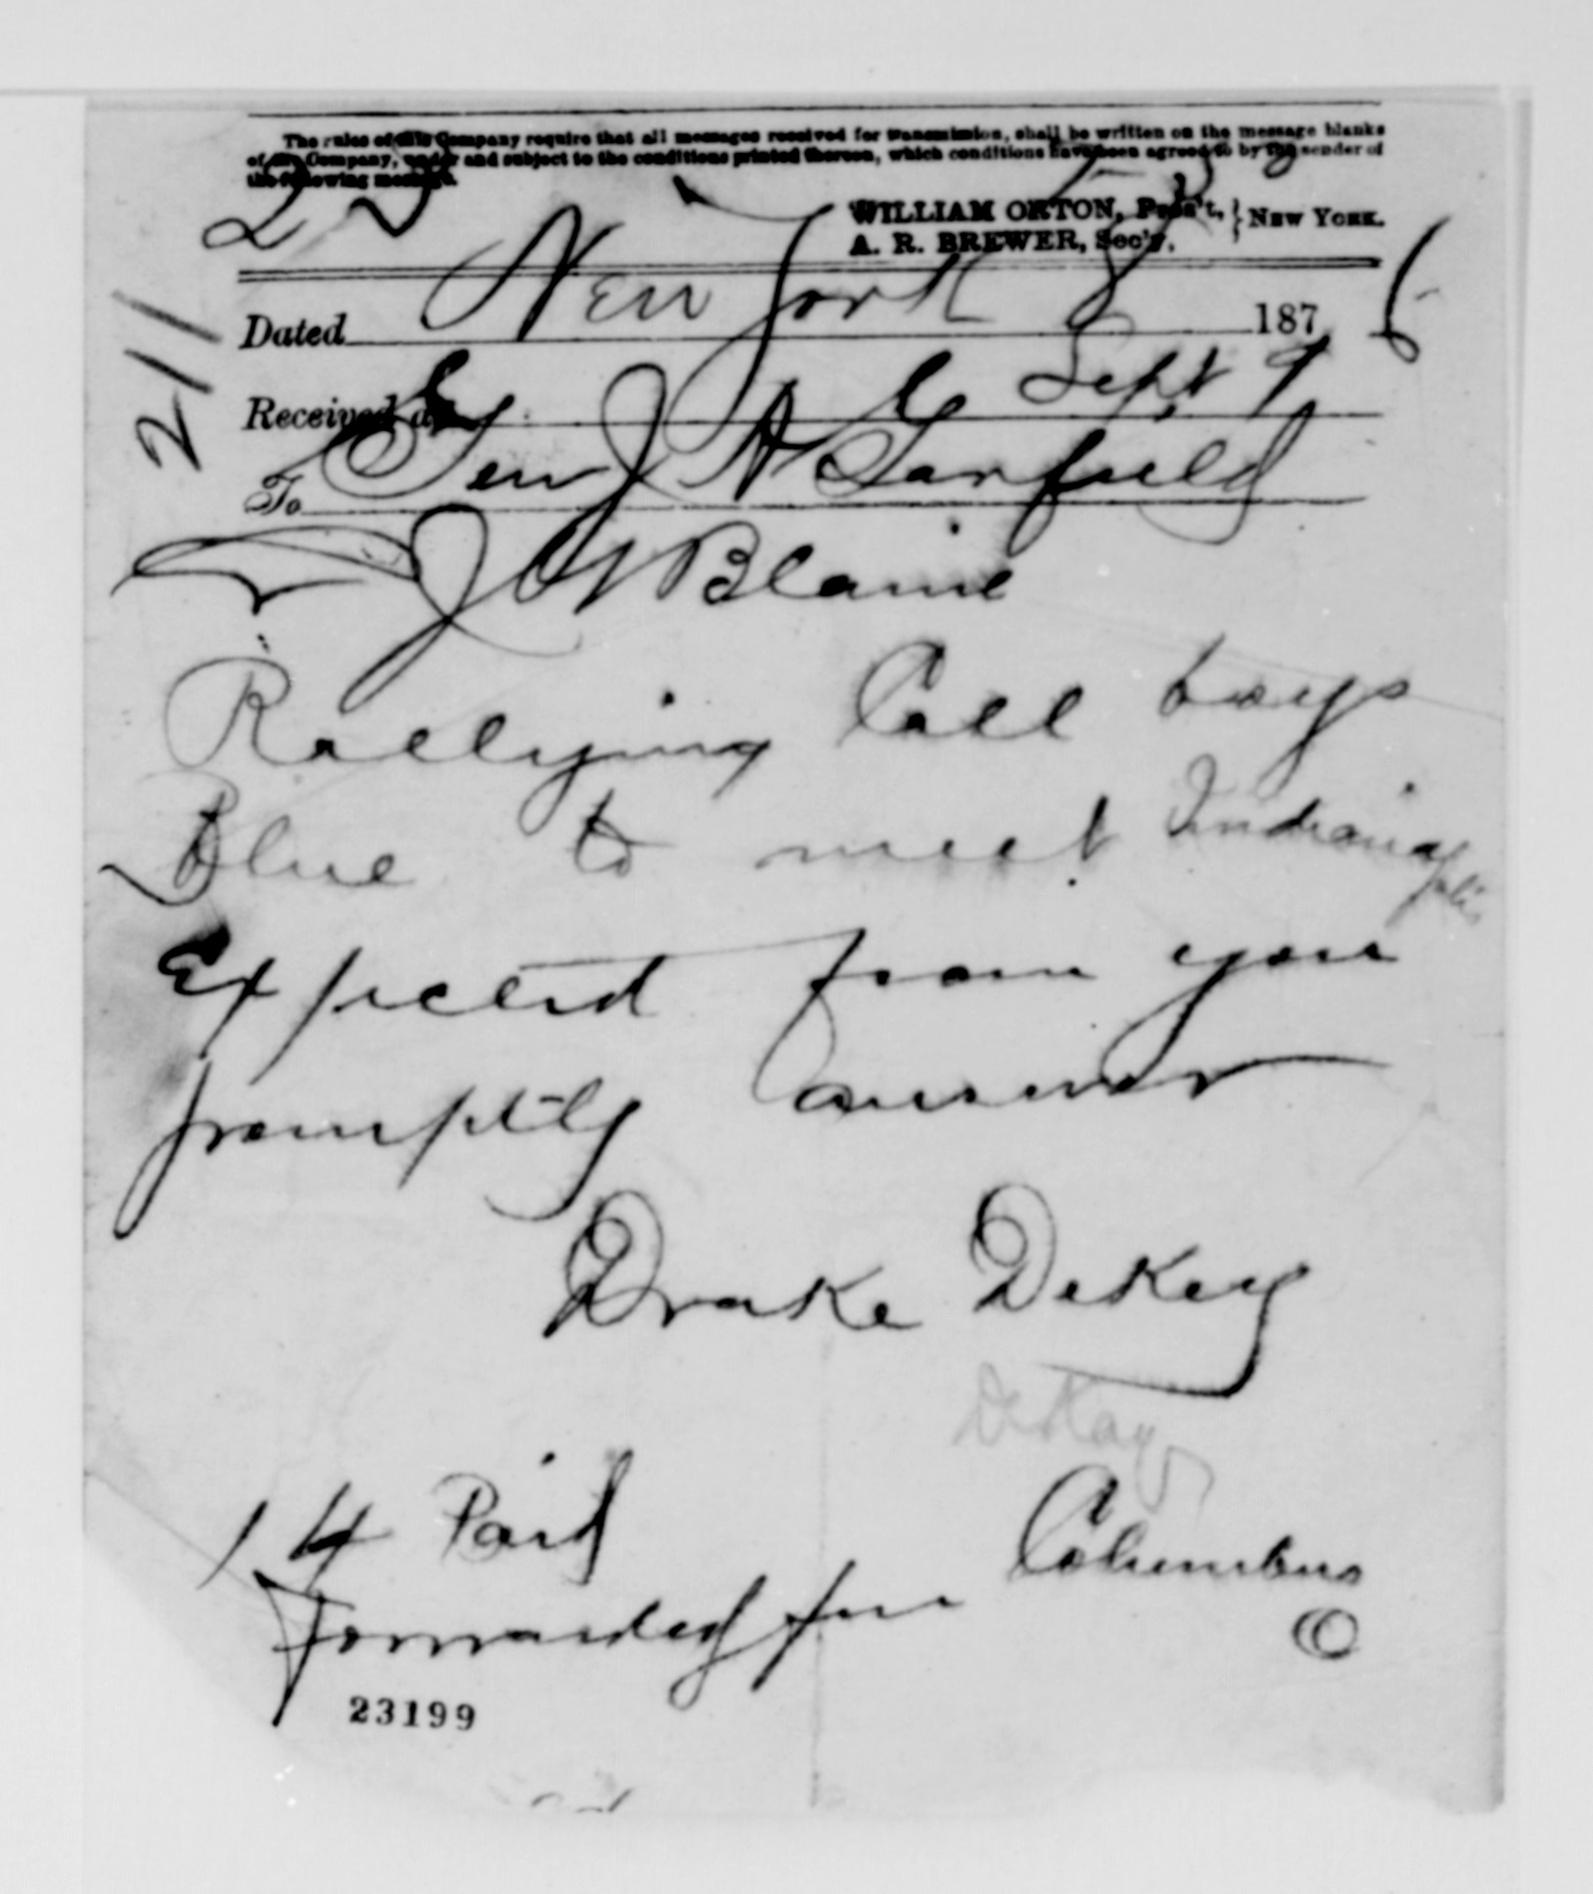 The rules of this Company require that all messages received for transmission, shall be written on the message blanks
of the Company, under and subject to the conditions printed thereon, which conditions have been agreed to by the sender of
the following message.
WILLIAM ORTON, Pres't,
A. R. BREWER, Sec'y. } NEW YORK.
Dated New York 187 6
211
Received at Sept 9
To Gen J A Garfield
J G Blaine
Rallying Call boys
Blue to meet Indianapolis
Expected from you
promptly answer
Drake DeKey
DeKay
14 Paid
Forwarded from Columbus
O
23199